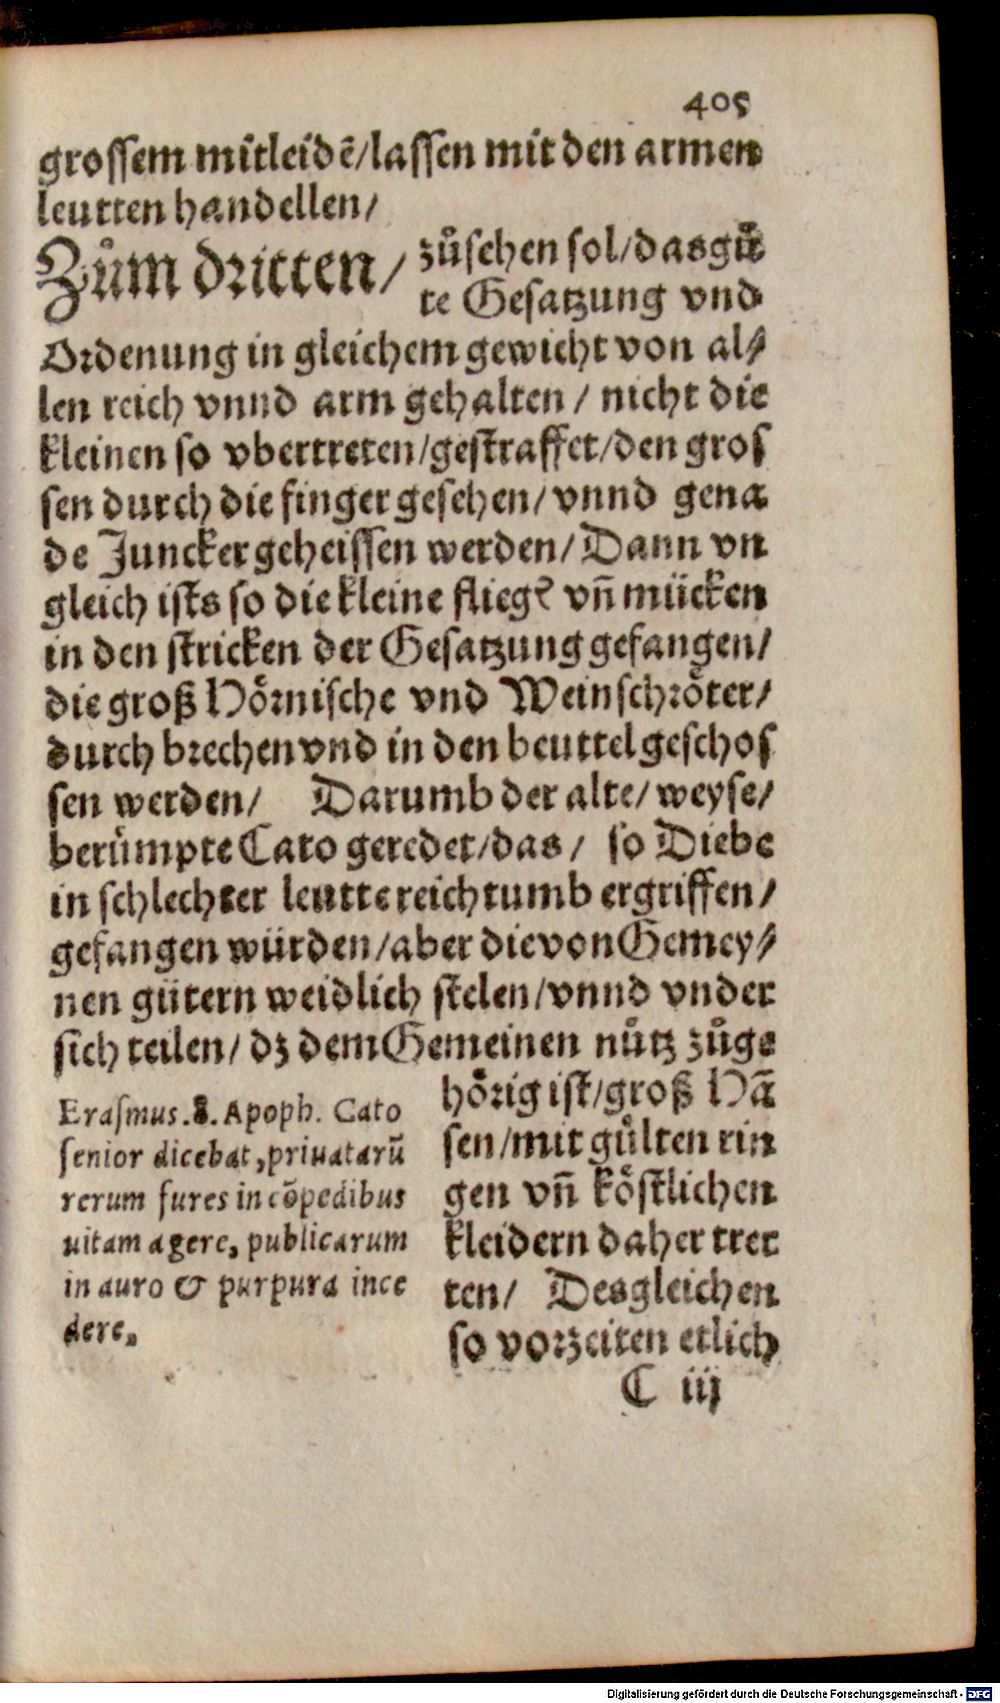 405
grossem mitleidē/lassen mit den armen
leutten handellen/
Zům dritten/ zůsehen sol/das gů
te Gesatzung vnd
Ordenung in gleichem gewicht von al⸗
len reich vnnd arm gehalten / nicht die
kleinen so vbertreten/gestraffet/den gros
sen durch die finger gesehen/ vnnd gena
de Juncker geheissen werden/ Dann vn
gleich ists so die kleine flieg̛ vñ mücken
in den stricken der Gesatzung gefangen/
die groß Hoͤrnische vnd Weinschroͤter/
durch brechen vnd in den beuttel geschos
sen werden/ Darumb der alte/ weyse/
beruͤmpte Cato geredet/das/ so Diebe
in schlechter leutte reichtumb ergriffen/
gefangen würden/aber die von Gemey⸗
nen gütern weidlich stelen/vnnd vnder
sich teilen/ dz dem Gemeinen nůtz zůge
hoͤrig ist/groß Hā
sen/mit guͤlten rin
gen vñ koͤstlichen
kleidern daher tret
ten/ Desgleichen
so vorzeiten etlich
Erasmus.8. Apoph. Cato
senior dicebat, priuatarū
rerum fures in cōpedibus
uitam agere, publicarum
in auro & purpura ince
dere.
C iij
Digitalisierung gefördert durch die Deutsche Forschungsgemeinschaft - DFG